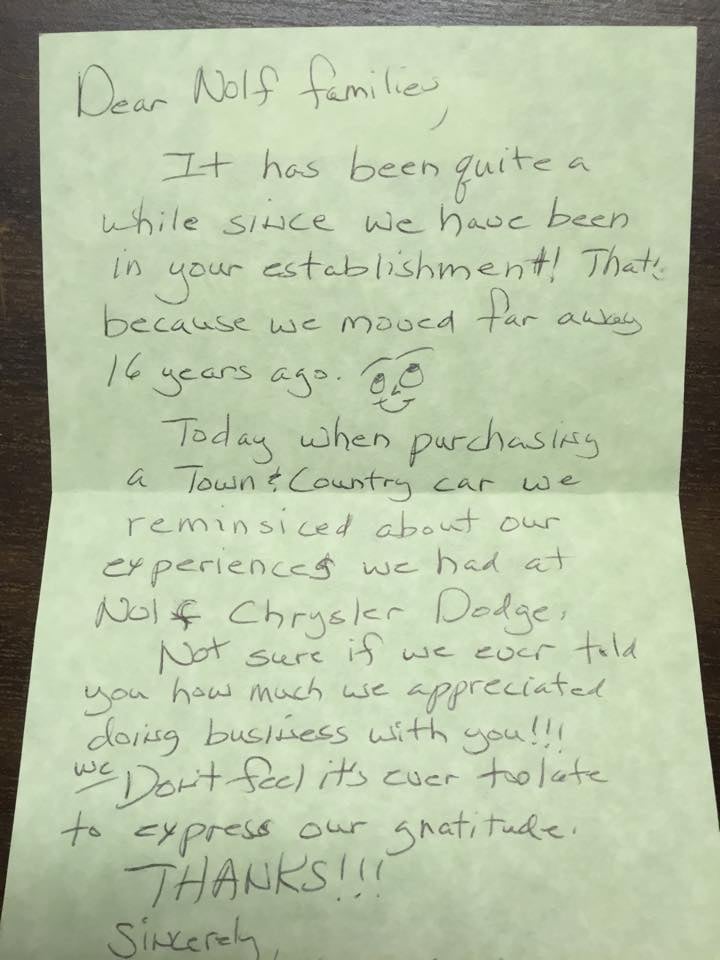 Dear Nolf families,
It has been quite a
while since we have been
in your establishment! That's
because we moved far away
16 years ago.
Today when purchasing
a Town & Country car we
reminsiced about our
experiences we had at
Nolf Chrysler Dodge.
Not sure if we ever told
you how much we appreciated
doing business with you!!!
We Don't feel it's ever too late
to express our gnatitude.
THANKS!!!
Sincerely,